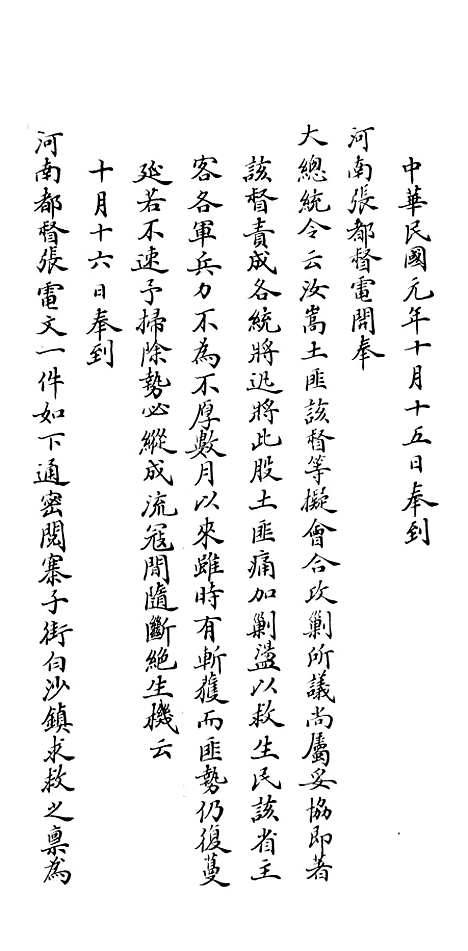 中華民國元年十月十五日奉到
河南張都督電閤奉
大總統令云汝嵩土匪該督等擬會合攻剿所議尚屬妥協即著
該督責成各統將迅將此股土匪痛加剿盪以救生民該省主
客各軍兵力不為不厚數月以來雖時有斬獲而匪勢仍復蔓
延若不速予掃除勢必縱成流寇閭隨斷絕生機云
十月十六日奉到
河南都督張電文一件如下通密閱寨子街白沙鎮求救之稟為